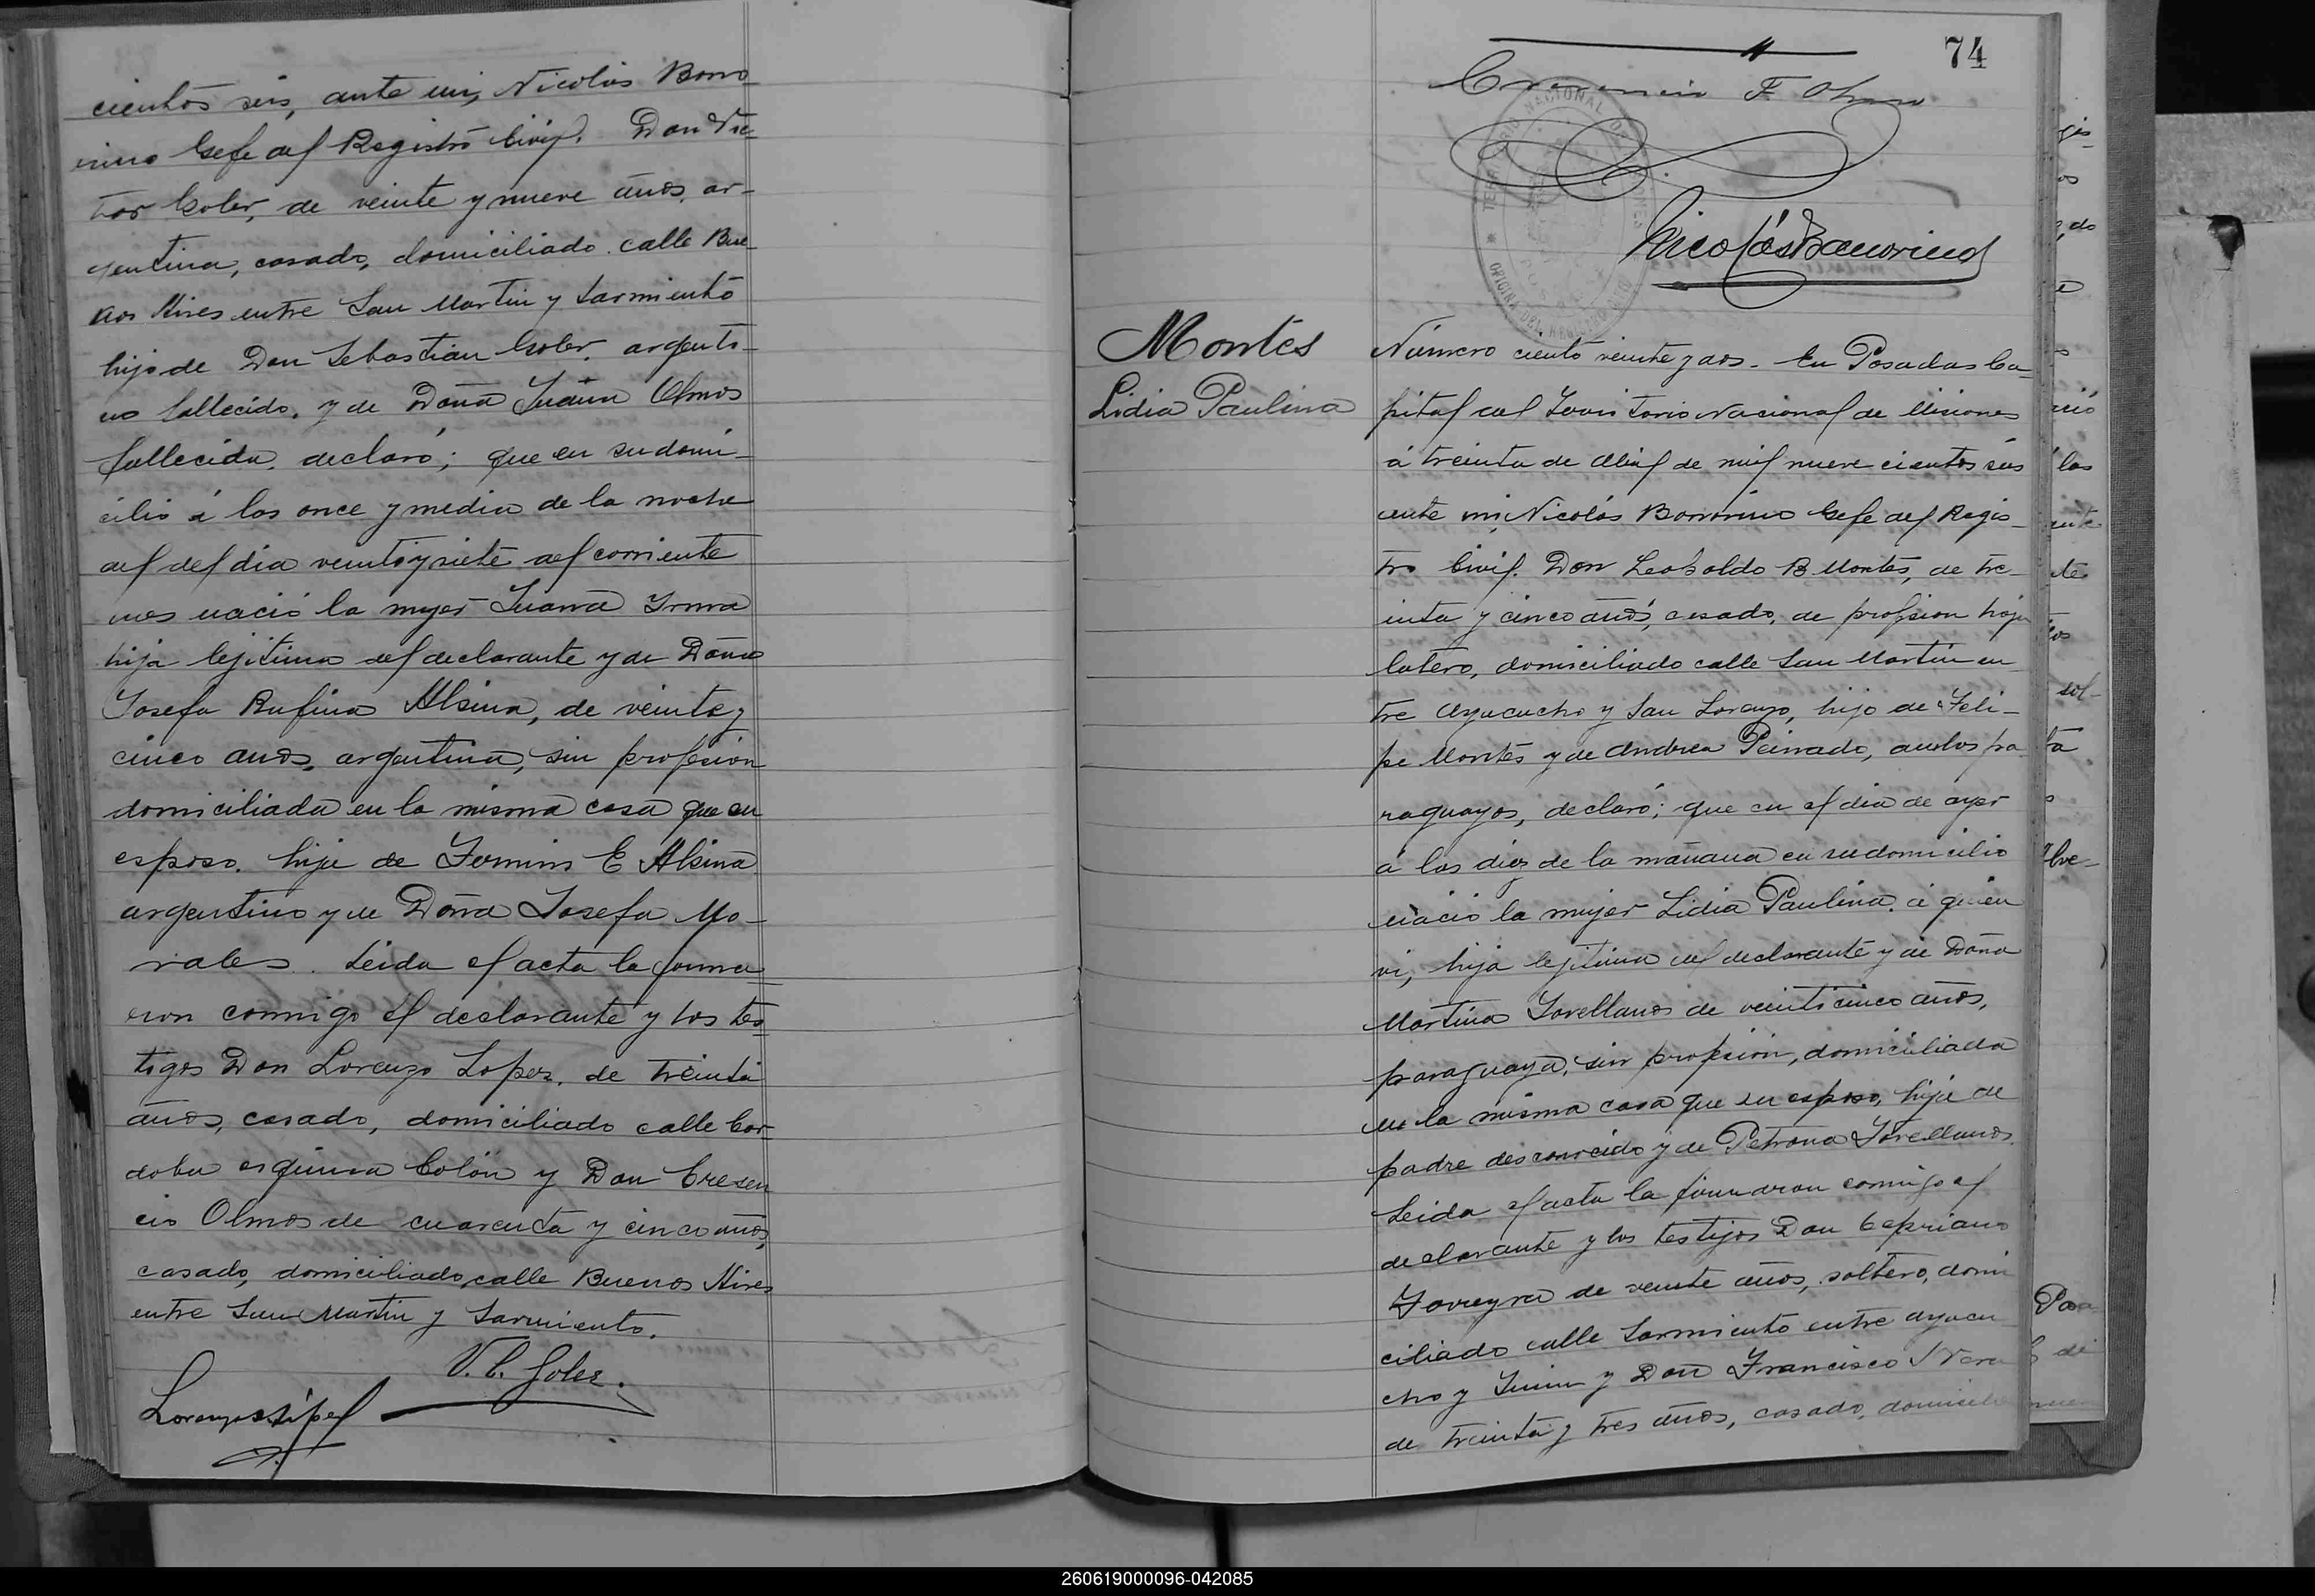 cientos seis, ante mi, Nicolás Bono
rino Gefe del Registro Civil. Don Vic
tor Goler, de veinte y nueve años, ar-
gentino, casado, domiciliado calle Bue
nos Aires entre San Martin y Sarmiento
hijo de Don Sebastian Goler, argenti-
no fallecido, y de Doña Juana Olmos
fallecida, declaró; que en su domi-
cilio á las once y media de la noche
del del dia veinte y siete del corriente
mes nació la mujer Juana Irma
hija lejitima del declarante y de Doña
Josefa Rufina Alsina, de veinte y
cinco años, argentina, sin profesion
domiciliada en la misma casa que su
esposo, hija de Fermin E Alsina
argentino y de Doña Josefa Mo-
rales. Leida el acta la firma
ron conmigo el declarante y los tes
tigos Don Lorenzo Lopez, de treinta
años, casado, domiciliado calle Cor
doba esquina Colón y Don Cresen
cio Olmos de cuarenta y cinco años,
casado, domiciliado calle Buenos Aires
entre San Martin y Sarmiento.
V. C. Goler.
Lorenzo López
74
Cresencio F Olmos
TERRITORIO NACIONAL DE MISIONES
POSADAS
OFICINA DEL REGISTRO CIVIL
Nicolás Bonorino
Montes
Lidia Paulina
Número ciento veinte y dos. En Posadas Ca
pital del Territorio Nacional de Misiones
á treinta de Abril de mil nueve cientos seis
ante mi, Nicolás Bonorino Gefe del Regis-
tro Civil. Don Leopoldo B Montes, de tre-
inta y cinco años, casado, de profesion hoja
latero, domiciliado calle San Martin en
tre Ayacucho y San Lorenzo, hijo de Feli-
pe Montes y de Andrea Peinado, ambos pa
raguayos, declaró; que en el dia de ayer
á las diez de la mañana en su domicilio
nació la mujer Lidia Paulina, á quien
vi, hija lejitima del declarante y de Doña
Martina Jovellanos de veinticinco años,
paraguaya, sin profesion, domiciliada
en la misma casa que su esposo, hija de
padre desconocido y de Petrona Jovellanos.
Leida el acta la firmaron conmigo el
declarante y los testijos Don Cipriano
Ferreyra de veinte años, soltero, domi
ciliado calle Sarmiento entre Ayacu
cho y Junin y Don Francisco J Vera
de treinta y tres años, casado, domicili
260619000096-042085